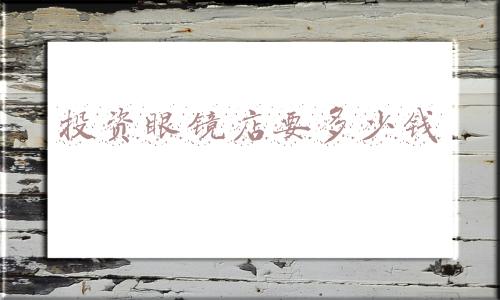 投资眼镜店要多少钱